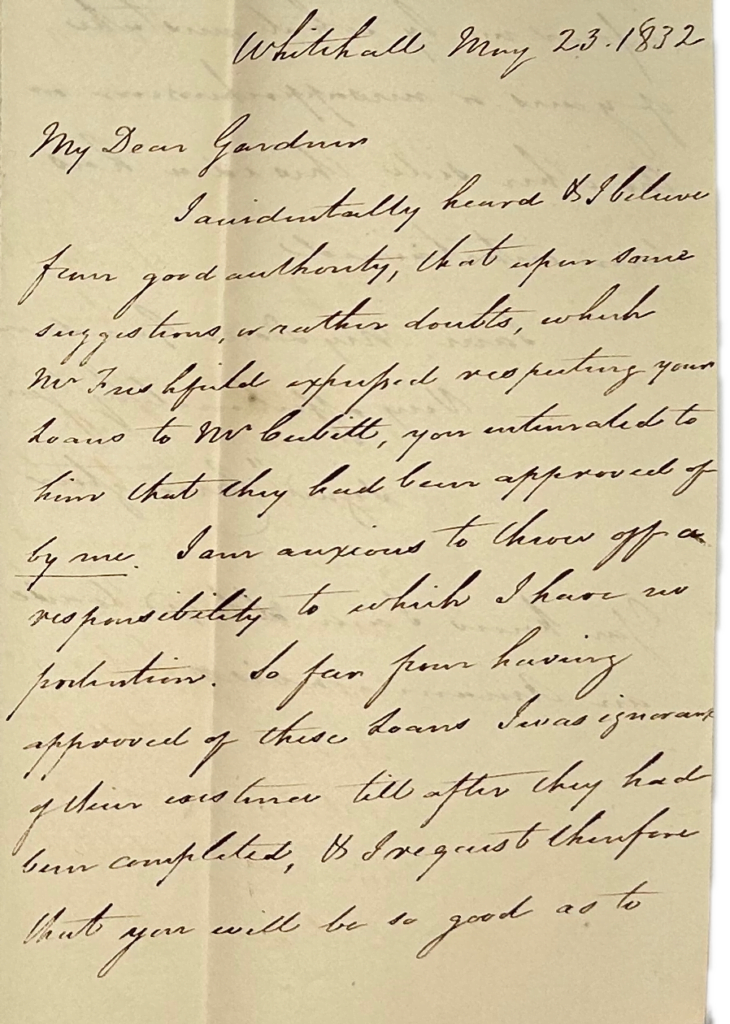 Whitehall May 23. 1832
My Dear Gardner
I accidentally heard & I believe
from good authority, that upon some
suggestions, or rather doubts, which
Mr Freshfield expressed respecting your
Loans to Mr Cubitt, you intimated to
him that they had been approved of
by me. I am anxious to throw off a
responsibility to which I have no
pretention. So far from having
approved of these Loans I was ignorant
of their existence till after they had
been completed, & I request therefore
that you will be so good as to